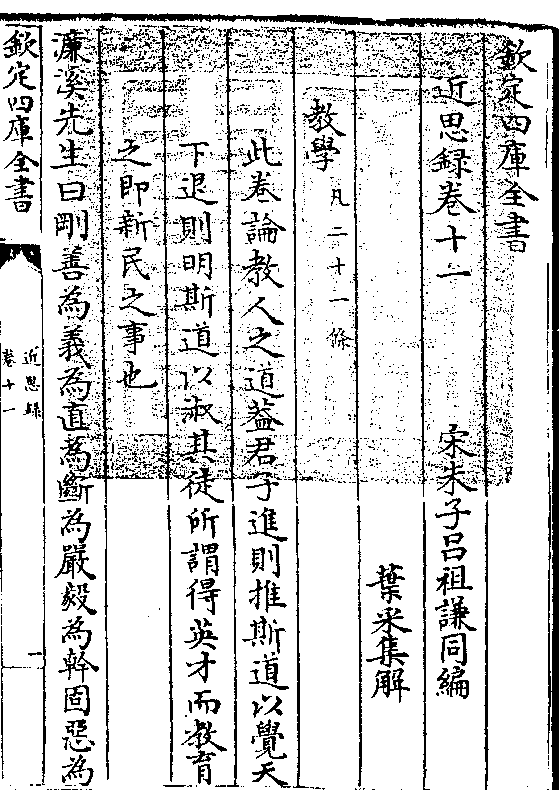 欽定四庫全書
近思錄卷十一
宋朱子呂祖謙同編
葉采集解
教學凡二十一條
此卷論教人之道葢君子進則推斯道以覺天
下退則明斯道以淑其徒所謂得英才而教育
之即新民之事也
濂溪先生曰剛善為義為直為斷為嚴毅為幹固惡為
欽定四庫全書
近思録
卷十一
一